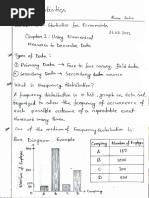 Statistics
Rumi Saha
Statistics for Economists
21.02.2022
Chapter 1: Using Numerical
Measures to Describe Data
Types of Data:
① Primary Data → Face to face survey, field data
② Secondary Data → Secondary data source
What is Frequency distribution?
A frequency distribution is a list, graph on data set,
organized to show the frequency of the occurrence of
each possible outcome of a repeatable event
observed many times.
One of the section of frequency distribution is:
Bar Diagram: Example
Company
Number of Employee
A
150
B
1500
C
300
D
200
Number of Employee